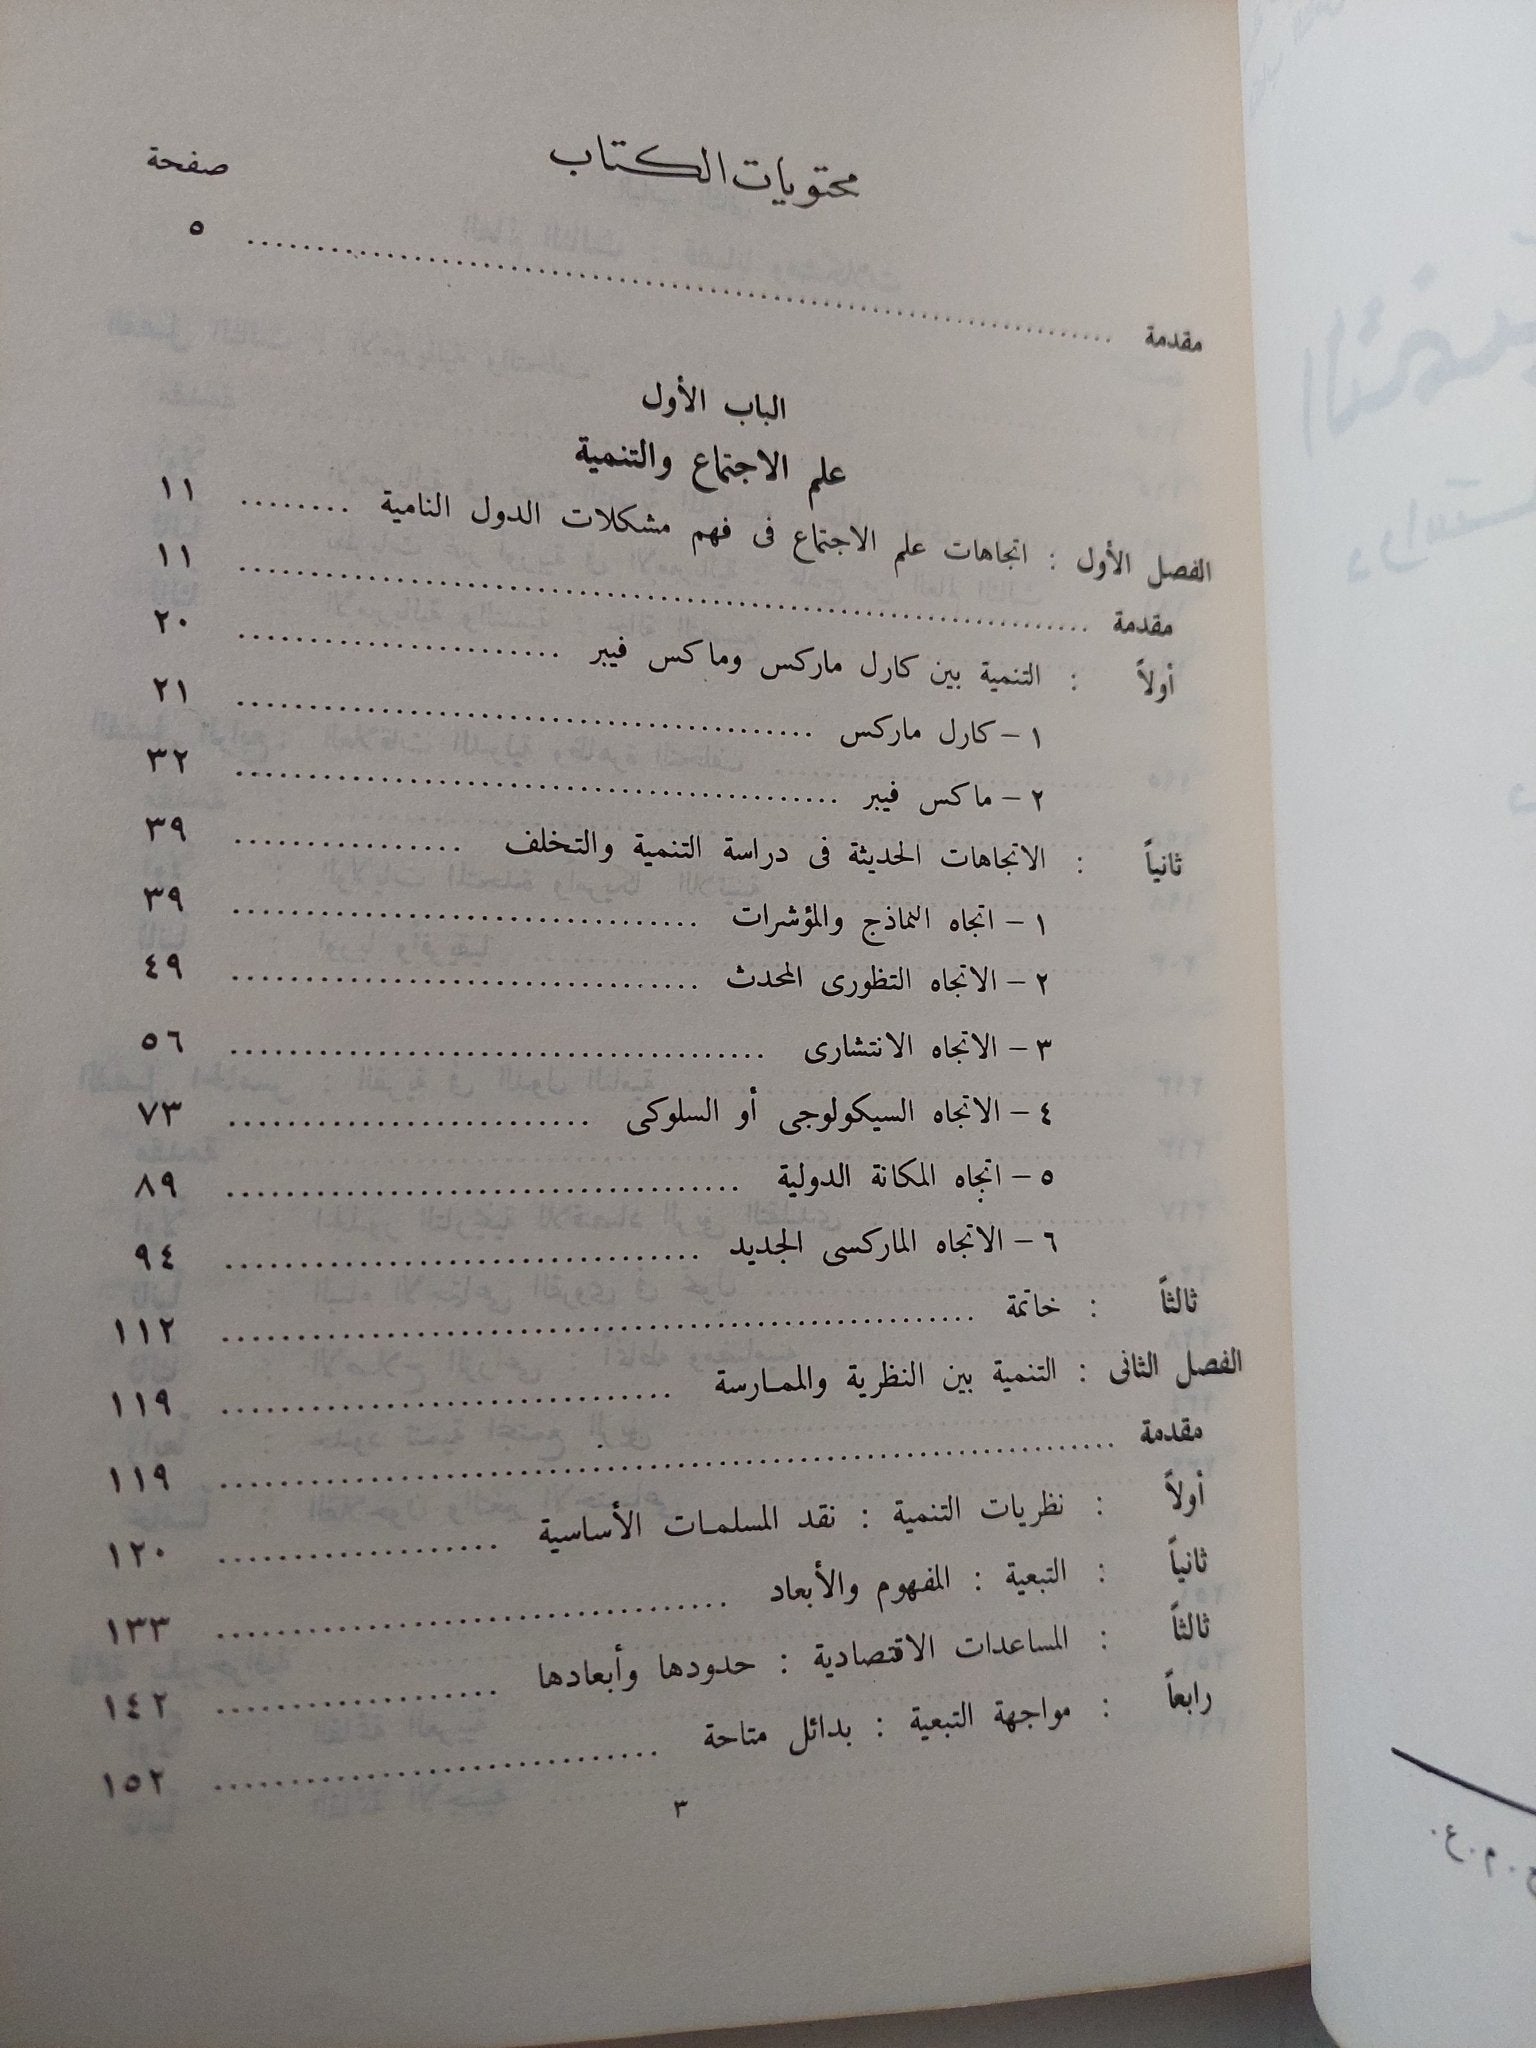 محتويات الكتاب
صفحة
مقدمة ........ ٥
الباب الأول
علم الاجتماع والتنمية
الفصل الأول : اتجاهات علم الاجتماع فى فهم مشكلات الدول النامية ........ ١١
مقدمة ........ ١١
أولاً : التنمية بين كارل ماركس وماكس فيبر ........ ٢٠
١ – كارل ماركس ........ ٢١
٢ – ماكس فيبر ........ ٣٢
ثانياً : الاتجاهات الحديثة فى دراسة التنمية والتخلف ........ ٣٩
١ – اتجاه النماذج والمؤشرات ........ ٣٩
٢ – الاتجاه التظورى المحدث ........ ٤٩
٣ – الاتجاه الانتشارى ........ ٥٦
٤ – الاتجاه السيكولوجى أو السلوكى ........ ٧٣
٥ – اتجاه المكانة الدولية ........ ٨٩
٦ – الاتجاه الماركسى الجديد ........ ٩٤
ثالثاً : خاتمة ........ ١١٢
الفصل الثانى : التنمية بين النظرية والممارسة ........ ١١٩
مقدمة ........ ١١٩
أولاً : نظريات التنمية : نقد المسلمات الأساسية ........ ١٢٠
ثانياً : التبعية : المفهوم والأبعاد ........ ١٣٣
ثالثاً : المساعدات الاقتصادية : حدودها وأبعادها ........ ١٤٢
رابعاً : مواجهة التبعية : بدائل متاحة ........ ١٥٢
٣